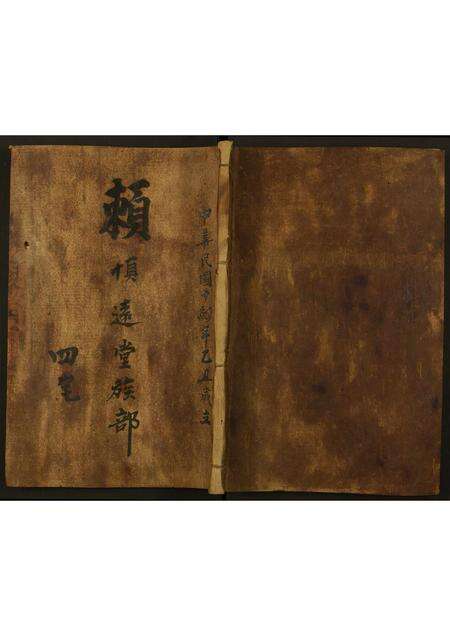 中華民國十四年乙丑歲立
賴慎遠堂族部
四宅